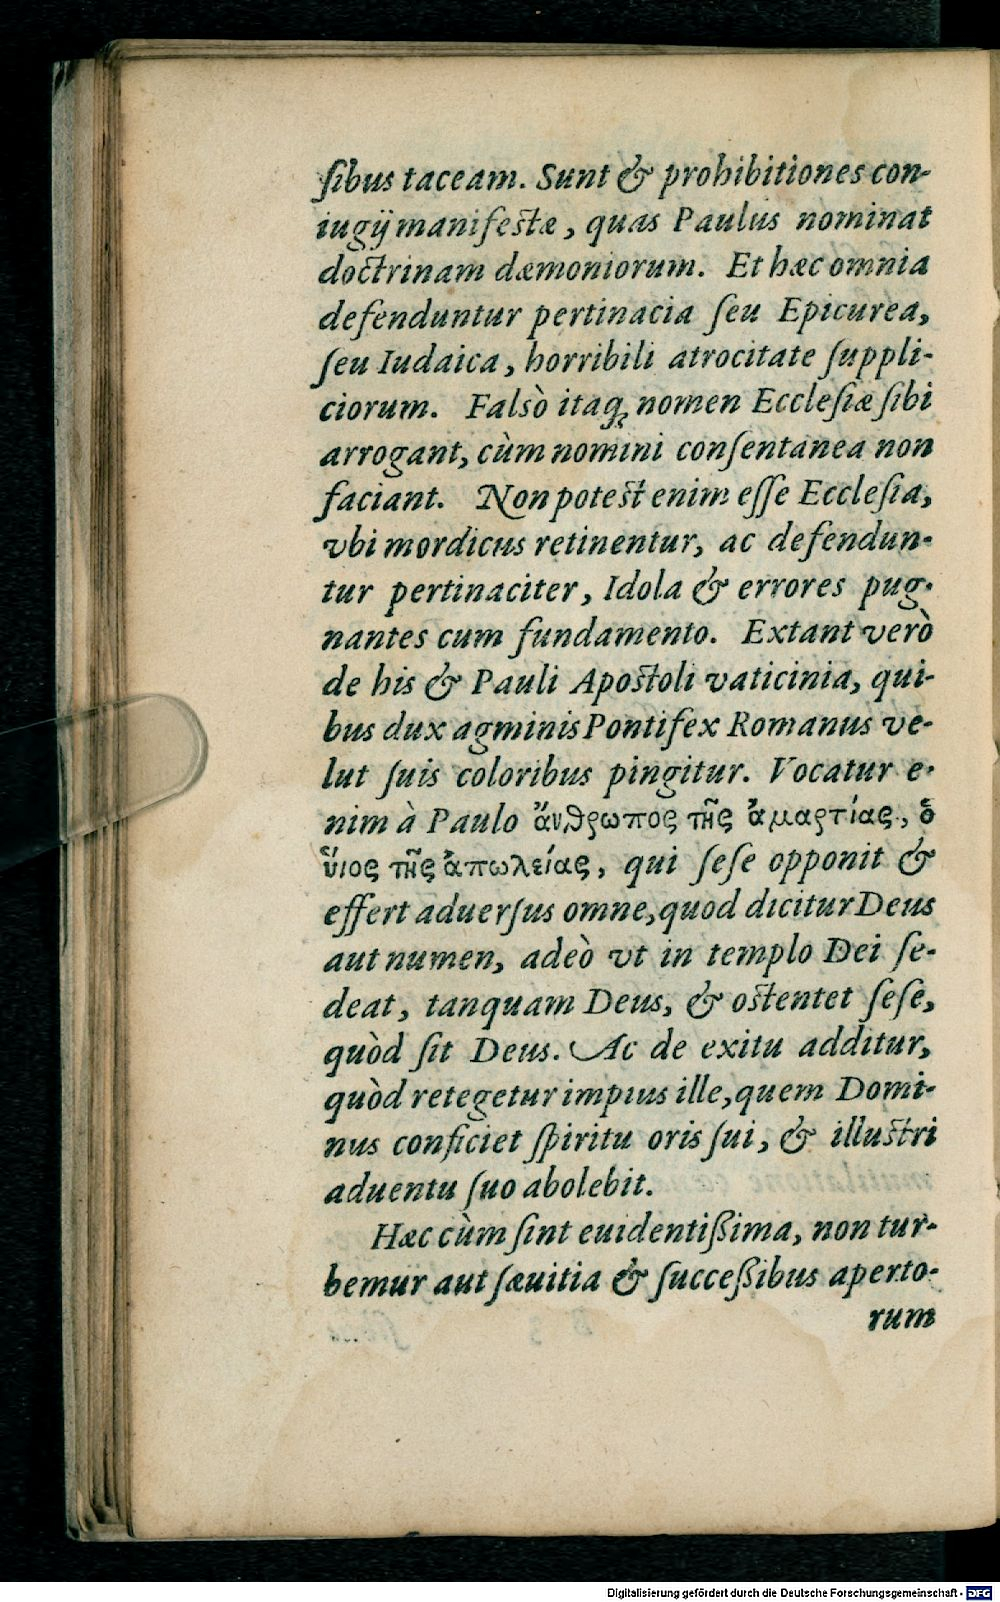 ſibus taceam. Sunt & prohibitiones con-
iugij manifeſtæ, quas Paulus nominat
doctrinam dæmoniorum. Et hæc omnia
defenduntur pertinacia ſeu Epicurea,
ſeu Iudaica, horribili atrocitate ſuppli-
ciorum. Falsò itaqꝫ nomen Eccleſiæ ſibi
arrogant, cùm nomini conſentanea non
faciant. Non poteſt enim eſſe Eccleſia,
vbi mordicus retinentur, ac defendun-
tur pertinaciter, Idola & errores pug-
nantes cum fundamento. Extant verò
de his & Pauli Apoſtoli vaticinia, qui-
bus dux agminis Pontifex Romanus ve-
lut ſuis coloribus pingitur. Vocatur e-
nim à Paulo ἄνθρωπος τῆς ἁμαρτίας, ὁ
ὕιος τῆς ἀπωλείας, qui ſeſe opponit &
effert aduerſus omne, quod dicitur Deus
aut numen, adeò vt in templo Dei ſe-
deat, tanquam Deus, & oſtentet ſeſe,
quòd ſit Deus. Ac de exitu additur,
quòd retegetur impius ille, quem Domi-
nus conficiet ſpiritu oris ſui, & illuſtri
aduentu ſuo abolebit.
Hæc cùm ſint euidentißima, non tur-
bemur aut ſæuitia & ſucceßibus aperto-
rum
Digitalisierung gefördert durch die Deutsche Forschungsgemeinschaft - DFG